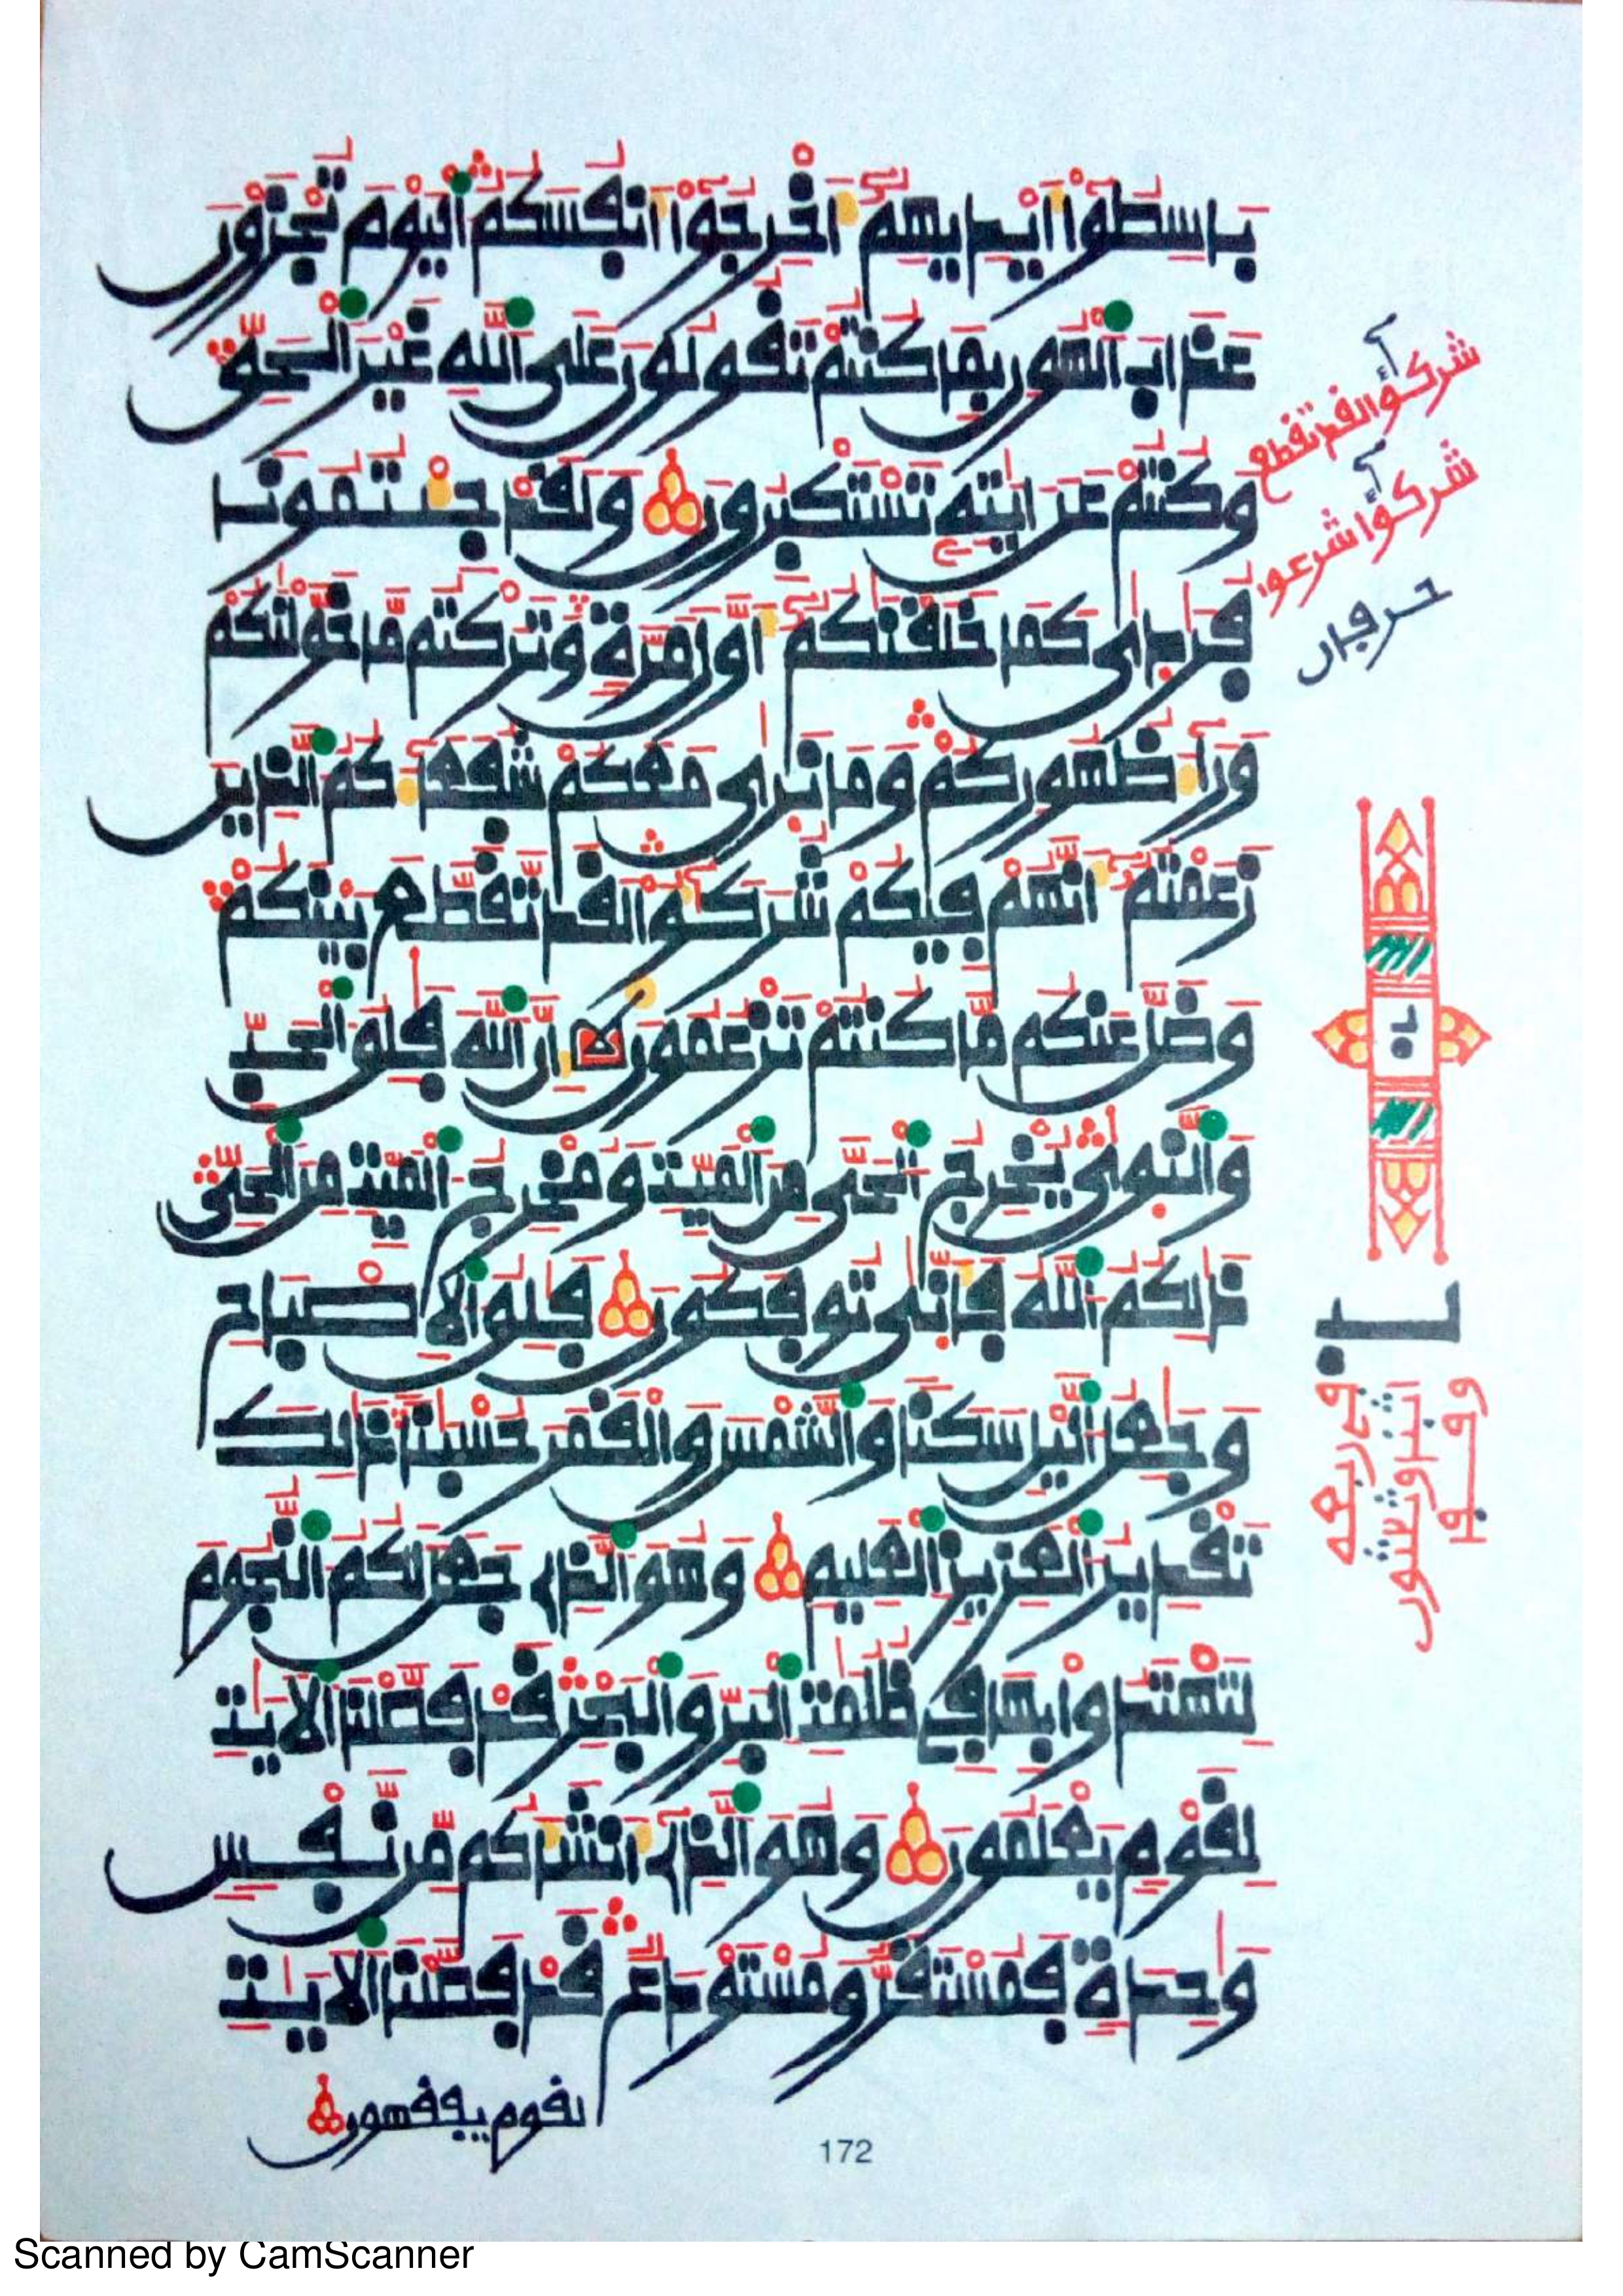 بَاسِطُوٓا۟ أَيْدِيهِمْ أَخْرِجُوٓا۟ أَنفُسَكُمُ اُ۬لْيَوْمَ تُجْزَوْنَ
عَذَابَ اَ۬لْهُونِ بِمَا كُنتُمْ تَقُولُونَ عَلَى اَ۬للَّهِ غَيْرَ اَ۬لْحَقِّ
وَكُنتُمْ عَنَ ايَٰتِهِۦ تَسْتَكْبِرُونَ وَلَقَدْ جِئْتُمُونَا
فُرَٰدَىٰ كَمَا خَلَقْنَٰكُمْ أَوَّلَ مَرَّةٖ وَتَرَكْتُم مَّا خَوَّلْنَٰكُمْ
وَرَآءَ ظُهُورِكُمْ وَمَا نَرَىٰ مَعَكُمْ شُفَعَآءَكُمُ اُ۬لذِينَ
زَعَمْتُمْ أَنَّهُمْ فِيكُمْ شُرَكَٰٓؤُا۟ لَقَد تَّقَطَّعَ بَيْنَكُمْ
وَضَلَّ عَنكُم مَّا كُنتُمْ تَزْعُمُونَ إِنَّ اَ۬للَّهَ فَٰلِقُ اُ۬لْحَبِّ
وَالنَّوَىٰ يُخْرِجُ اُ۬لْحَيَّ مِنَ اَ۬لْمَيِّتِ وَمُخْرِجُ اُ۬لْمَيِّتِ مِنَ اَ۬لْحَيِّ
ذَٰلِكُمُ اُ۬للَّهُ فَأَنَّىٰ تُوفَكُونَ فَٰلِقُ اُ۬لْإِصْبَاحِ
وَجَٰعِلُ اُ۬ليْلِ سَكَناٗ وَالشَّمْسَ وَالْقَمَرَ حُسْبَٰناٗ ذَٰلِكَ
تَقْدِيرُ اُ۬لْعَزِيزِ اِ۬لْعَلِيمِ وَهُوَ اَ۬لذِى جَعَلَ لَكُمُ اُ۬لنُّجُومَ
لِتَهْتَدُوا۟ بِهَا فِى ظُلُمَٰتِ اِ۬لْبَرِّ وَالْبَحْرِ قَدْ فَصَّلْنَا اَ۬لْأيَٰتِ
لِقَوْمٖ يَعْلَمُونَ وَهُوَ اَ۬لذِى أَنشَأَكُم مِّن نَّفْسٖ
وَٰحِدَةٖ فَمُسْتَقَرّٞ وَمُسْتَوْدَعٞ قَدْ فَصَّلْنَا اَ۬لْأيَٰتِ
لقوم يفقهون
شركؤا لقد تقطع
شركؤا شرعوا
حرفان
172
Scanned by CamScanner